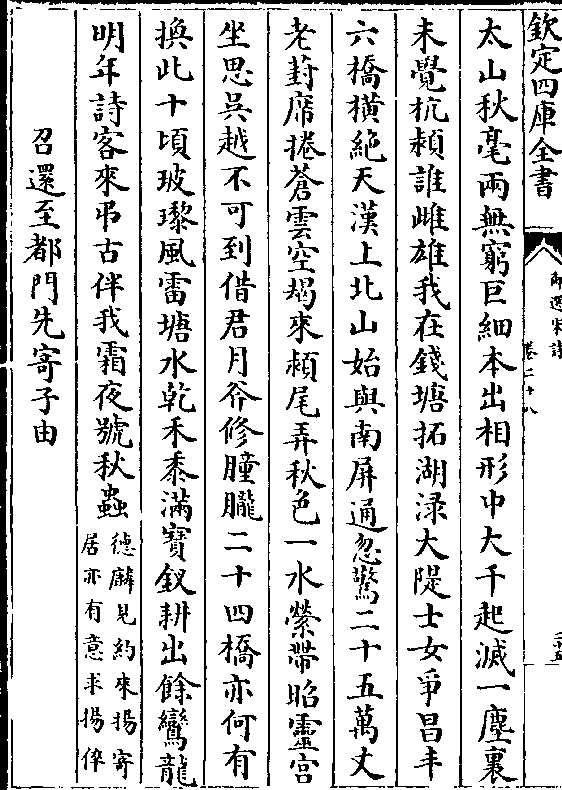 欽定四庫全書
御選宋詩
卷二十八
二十五
太山秋毫兩無窮巨細本出相形中大千起滅一塵裏
未覺杭潁誰雌雄我在錢塘拓湖淥大隄士女爭昌丰
六橋橫絶天漢上北山始與南屏通忽驚二十五萬丈
老葑席捲蒼雲空朅來潁尾弄秋色一水縈帶昭靈宫
坐思吳越不可到借君月斧修朣朧二十四橋亦何有
換此十頃玻瓈風雷塘水乾禾黍滿寳釵耕出餘鸞龍
明年詩客來弔古伴我霜夜號秋蟲
德麟見約來揚寄
居亦有意求揚倅
召還至都門先寄子由